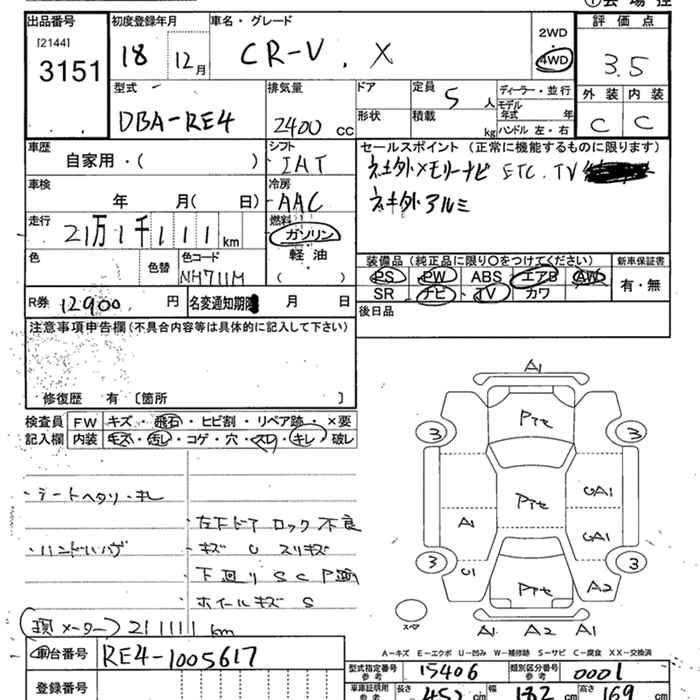 出品番号 初度登録年月 車名・グレード 評価点
[2144]
3151
18 12月 CR-V. X 2WD 4WD 3.5
型式 排気量 ドア 定員 5人 ディーラー・並行 外装 内装
DBA-RE4 2400 cc 形状 積載 kg モデル年式 年 ハンドル 左・右 C C
車歴 シフト セールスポイント(正常に機能するものに限ります)
自家用・( ) IAT
ETC. TV
車検 冷房
年 月( 日) AAC アルミ
走行 燃料
21万1千111km ガソリン
色 色替 色コード 軽油 装備品(純正品に限り○をつけてください) 新車保証書
NH711M ( ) PS PW ABS エアB AW 有・無
R券 12900 円 名変通知期限 月 日 SR ナビ TV カワ
後日品
注意事項申告欄(不具合内容等は具体的に記入して下さい)
修復歴 有 〔箇所 〕
検査員 FW キズ・飛石・ヒビ割・リペア跡・×要
記入欄 内装 キズ・汚し・コゲ・穴・スレ・キレ・破レ
シートヘタリ・キレ
左下ドア ロック不良
ハンドルハゲ キズ U スリキズ
下回り S C P
ホイールキズ S
メーター) 211111 km
A1
Pタセ
3 3
Pタセ GA1
A1 GA1
3 3
U1 Pタセ A2
スペア A1 A2 A1
A-キズ E-エクボ U-凹み W-補修跡 S-サビ C-腐食 XX-交換済
車台番号 RE4-1005617
登録番号
型式指定番号 参考 15406 類別区分番号 参考 0001
車庫証明用 参考 長さ 452 cm 幅 182 cm 高さ 169 cm